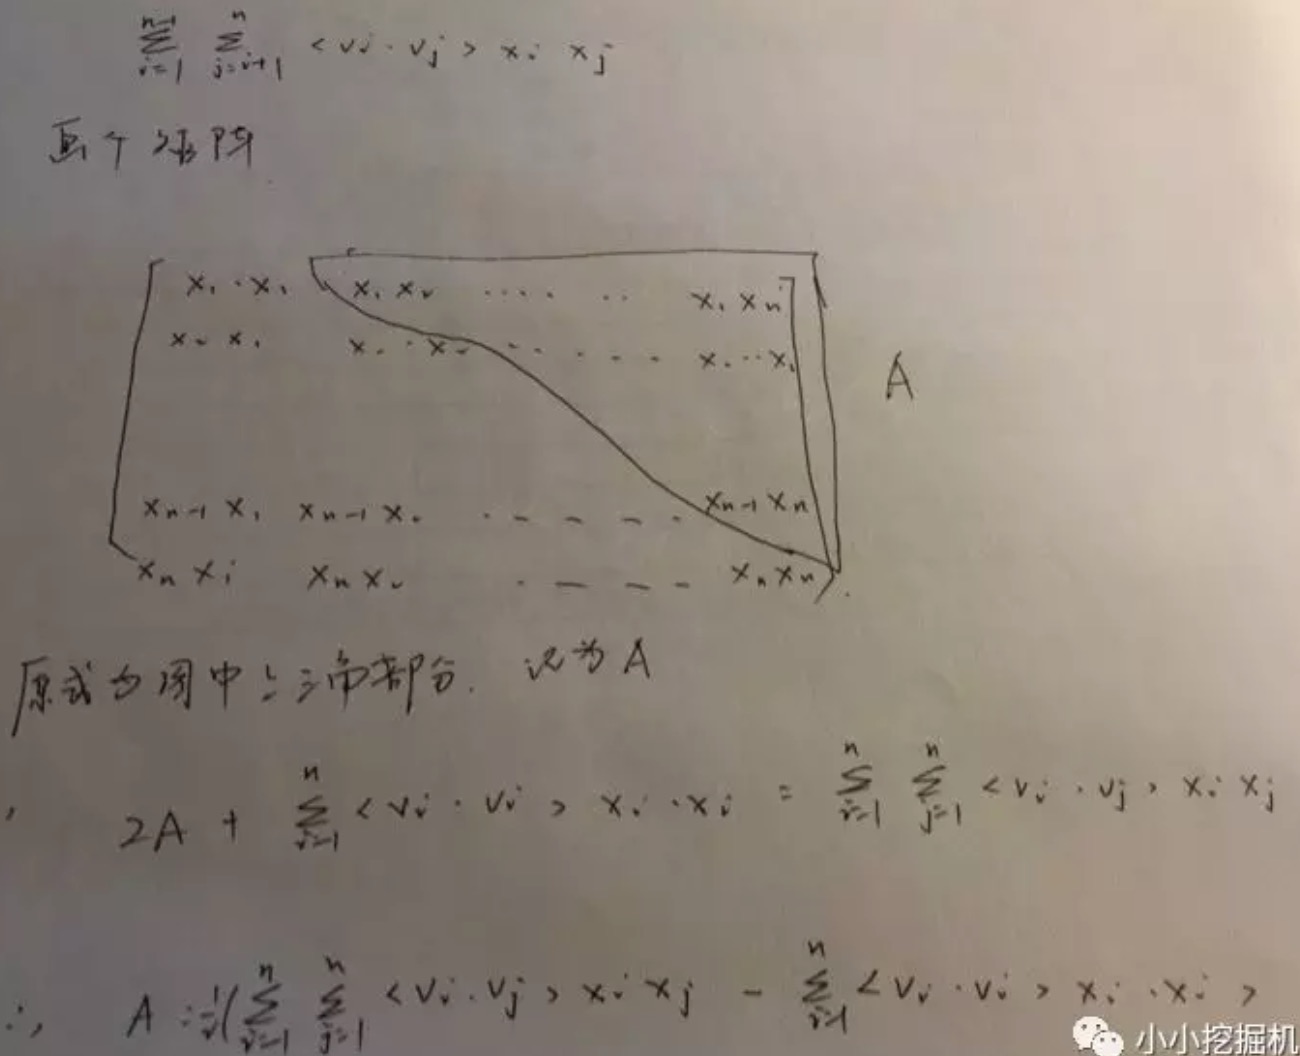 n-1 n
Σ Σ <vi · vj> xi xj
i=1 j=i+1
画个矩阵
x1 · x1 x1 x2 ···· ·· x1 xn
x2 x1 x· · x2 - - · - - - x· ·· x·
A
xn-1 x1 xn-1 x2 · - - - - · xn-1 xn
xn xi xn x2 · - - - - xn xn
原式为图中上三角部分. 设为A
, 2A + Σ(i=1, n) <vi · vi> xi · xi = Σ(i=1, n) Σ(j=1, n) <vi · vj> xi xj
∴, A = ½( Σ(i=1, n) Σ(j=1, n) <vi · vj> xi xj - Σ(i=1, n) <vi · vi> xi · xi >
小小挖掘机